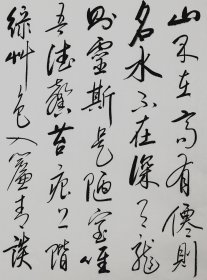 山不在高有僊則
名水不在深有龍
則靈斯是陋室唯
吾德馨苔痕上階
綠艸色入簾青談